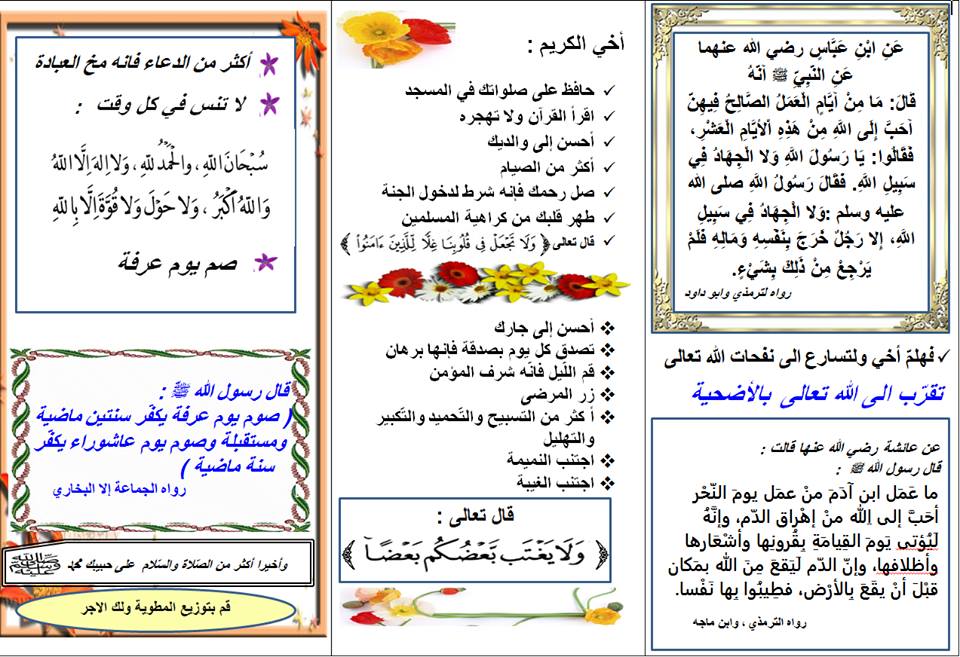 عَنِ ابْنِ عَبَّاسٍ رضي الله عنهما
عَنِ النَّبِيِّ ﷺ أَنَّهُ
قَالَ: مَا مِنْ أَيَّامٍ الْعَمَلُ الصَّالِحُ فِيهِنَّ
أَحَبَّ إِلَى اللهِ مِنْ هَذِهِ اْلأَيَّامِ الْعَشْرِ،
فَقَالُوا: يَا رَسُولَ اللهِ وَلا الْجِهَادُ فِي
سَبِيلِ اللهِ. فَقَالَ رَسُولُ اللهِ صلى الله
عليه وسلم :وَلا الْجِهَادُ فِي سَبِيلِ
اللهِ، إِلا رَجُلٌ خَرَجَ بِنَفْسِهِ وَمَالِهِ فَلَمْ
يَرْجِعْ مِنْ ذَلِكَ بِشَيْءٍ.
رواه لترمذي وابو داود
✓ فهلمّ أخي ولتسارع الى نفحات الله تعالى
تقرّب الى الله تعالى بالأضحية
عن عائشة رضي الله عنها قالت :
قال رسول الله ﷺ :
ما عَمَل ابن آدَمَ منْ عمَل يومَ النّحْر
أحَبَّ إلى اللهِ منْ إهْراق الدّم، وإنَّهُ
لَيُؤتَى يَومَ القِيامَةِ بِقُرونِها وأشْعَارها
وأظْلافها، وإنّ الدّم لَيَقعَ مِنَ الله بمَكان
قَبْلَ أنْ يقَعَ بِالأرْض، فَطِيبُوا بِها نَفْسا.
رواه الترمذي ، وابن ماجه
أخي الكريم :
✓ حافظ على صلواتك في المسجد
✓ اقرأ القرآن ولا تهجره
✓ أحسن إلى والديك
✓ أكثر من الصيام
✓ صل رحمك فإنه شرط لدخول الجنة
✓ طهر قلبك من كراهية المسلمين
✓ قال تعالى ﴿ وَلَا تَجْعَلْ فِى قُلُوبِنَا غِلًّا لِّلَّذِينَ ءَامَنُوا۟ ﴾
❖ أحسن إلى جارك
❖ تصدق كل يوم بصدقة فإنها برهان
❖ قم اللّيل فانّه شرف المؤمن
❖ زر المرضى
❖ أ كثر من التسبيح والتّحميد والتّكبير
والتهليل
❖ اجتنب النميمة
❖ اجتنب الغيبة
قال تعالى :
﴿ وَلَا يَغْتَب بَّعْضُكُم بَعْضًا ﴾
أكثر من الدعاء فانه مخ العبادة
لا تنس في كل وقت :
سُبْحَانَ اللهِ ، والْحَمْدُ للهِ ، وَلا إِلهَ إِلَّا اللهُ
وَاللهُ أَكْبَرُ ، وَلا حَوْلَ وَلا قُوَّةَ إِلَّا بِاللهِ
صم يوم عرفة
قال رسول الله ﷺ :
( صوم يوم عرفة يكفّر سنتين ماضية
ومستقبلة وصوم يوم عاشوراء يكفّر
سنة ماضية )
رواه الجماعة إلا البخاري
وأخيرا أكثر من الصّلاة والسّلام على حبيبك محمد ﷺ
قم بتوزيع المطوية ولك الاجر